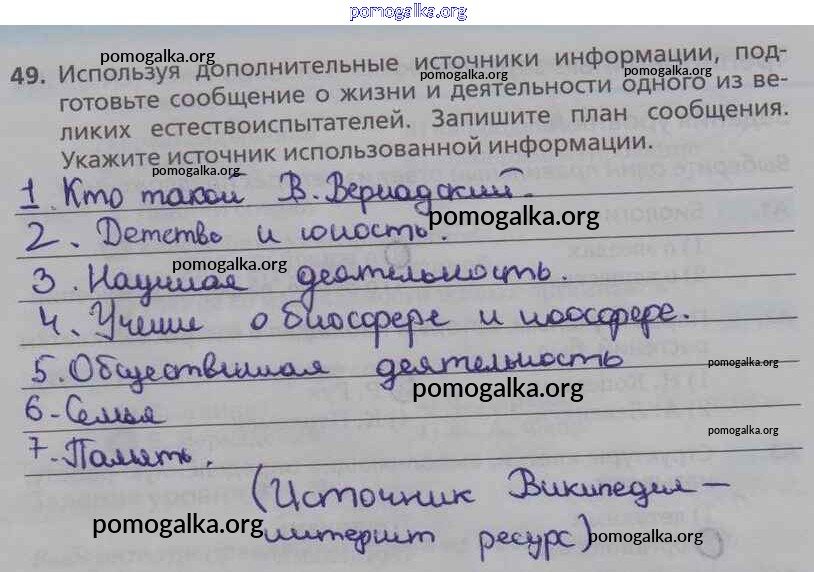 pomogalka.org
pomogalka.org
49. Используя дополнительные источники информации, под-
pomogalka.org pomogalka.org
готовьте сообщение о жизни и деятельности одного из ве-
ликих естествоиспытателей. Запишите план сообщения.
Укажите источник использованной информации.
pomogalka.org
1. Кто такой В. Вернадский.
pomogalka.org
2. Детство и юность.
pomogalka.org
3. Научная деятельность.
4. Учение о биосфере и ноосфере.
5. Общественная деятельность
pomogalka.org
pomogalka.org
6. Семья
pomogalka.org
7. Память.
(Источник Википедия –
pomogalka.org
интернет ресурс)
pomogalka.org